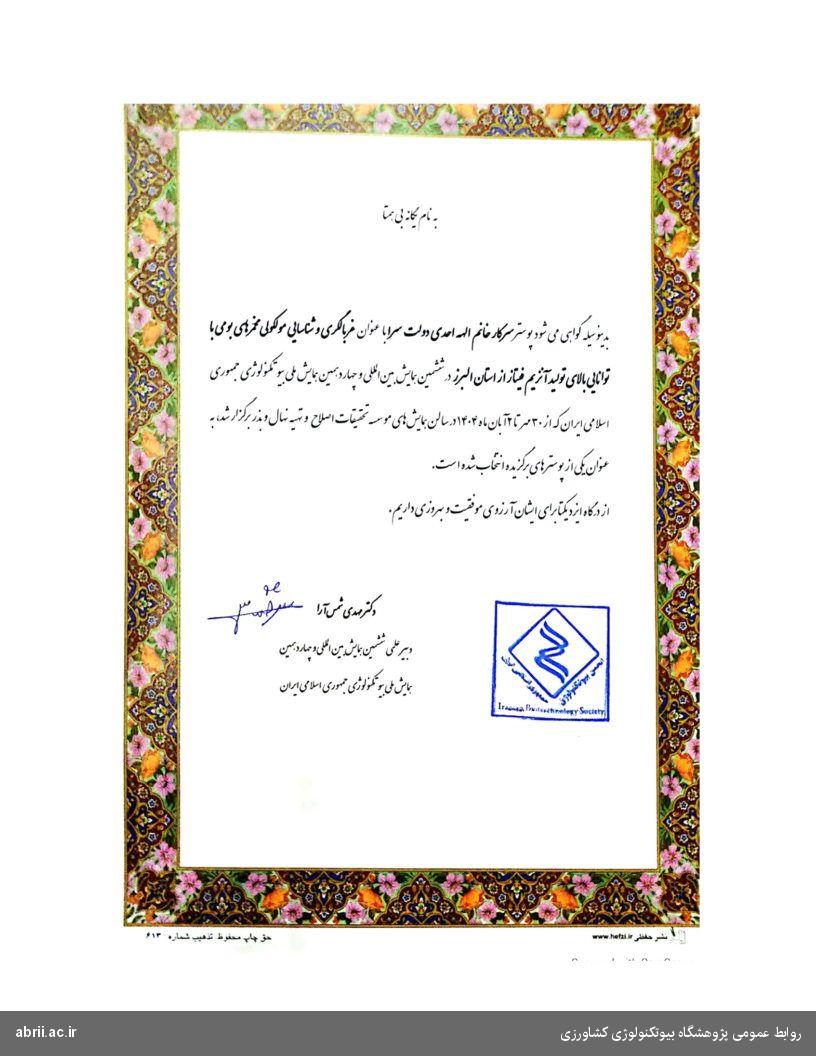 به نام یگانه بی همتا
بدینوسیله گواهی می شود پوستر سرکار خانم الهه احدی دولت سرا با عنوان غربالگری و شناسایی مولکولی مخمرهای بومی با
توانایی بالای تولید آنزیم فیتاز از استان البرز در ششمین همایش بین المللی و چهاردهمین همایش ملی بیوتکنولوژی جمهوری
اسلامی ایران که از ۳۰ مهر تا ۲ آبان ماه ۱۴۰۴ در سالن همایش های موسسه تحقیقات اصلاح و تهیه نهال و بذر برگزار شد، به
عنوان یکی از پوسترهای برگزیده انتخاب شده است.
از درگاه ایزد یکتا برای ایشان آرزوی موفقیت و بهروزی داریم.
دکتر مهدی شمس آرا
دبیر علمی ششمین همایش بین المللی و چهاردهمین
همایش ملی بیوتکنولوژی جمهوری اسلامی ایران
انجمن بیوتکنولوژی جمهوری اسلامی ایران
Iranian Biotechnology Society
نشر حفظی www.hefzi.ir
حق چاپ محفوظ تذهیب شماره ۶۱۳
روابط عمومی پژوهشگاه بیوتکنولوژی کشاورزی
abrii.ac.ir